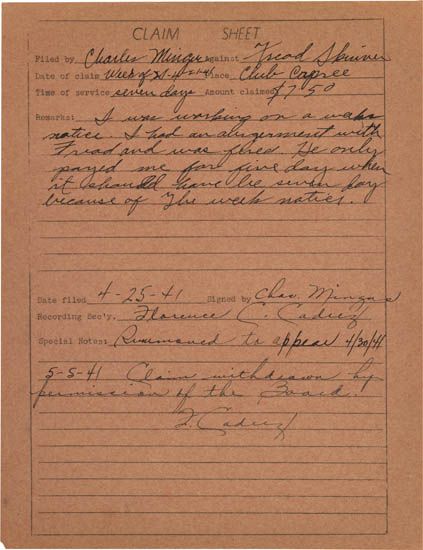 CLAIM SHEET
Filed by Charles Mingus Against Fread Skinner
Date of claim Week of 4-21-41 Place Club Capree
Time of service seven days Amount claimed $7.50
Remarks: I was working on a weeks
notice. I had an alrgerment with
Fread and was fired. He only
payed me for five day when
it should have be seven day
because of The week notice.
Date filed 4-25-41 Signed by Chas. Mingus
Recording Sec'y. Florence C. Cadrez
Special Notes: Summoned to appear 4/30/41
5-5-41 Claim withdrawn by
permission of the Board.
F. Cadrez